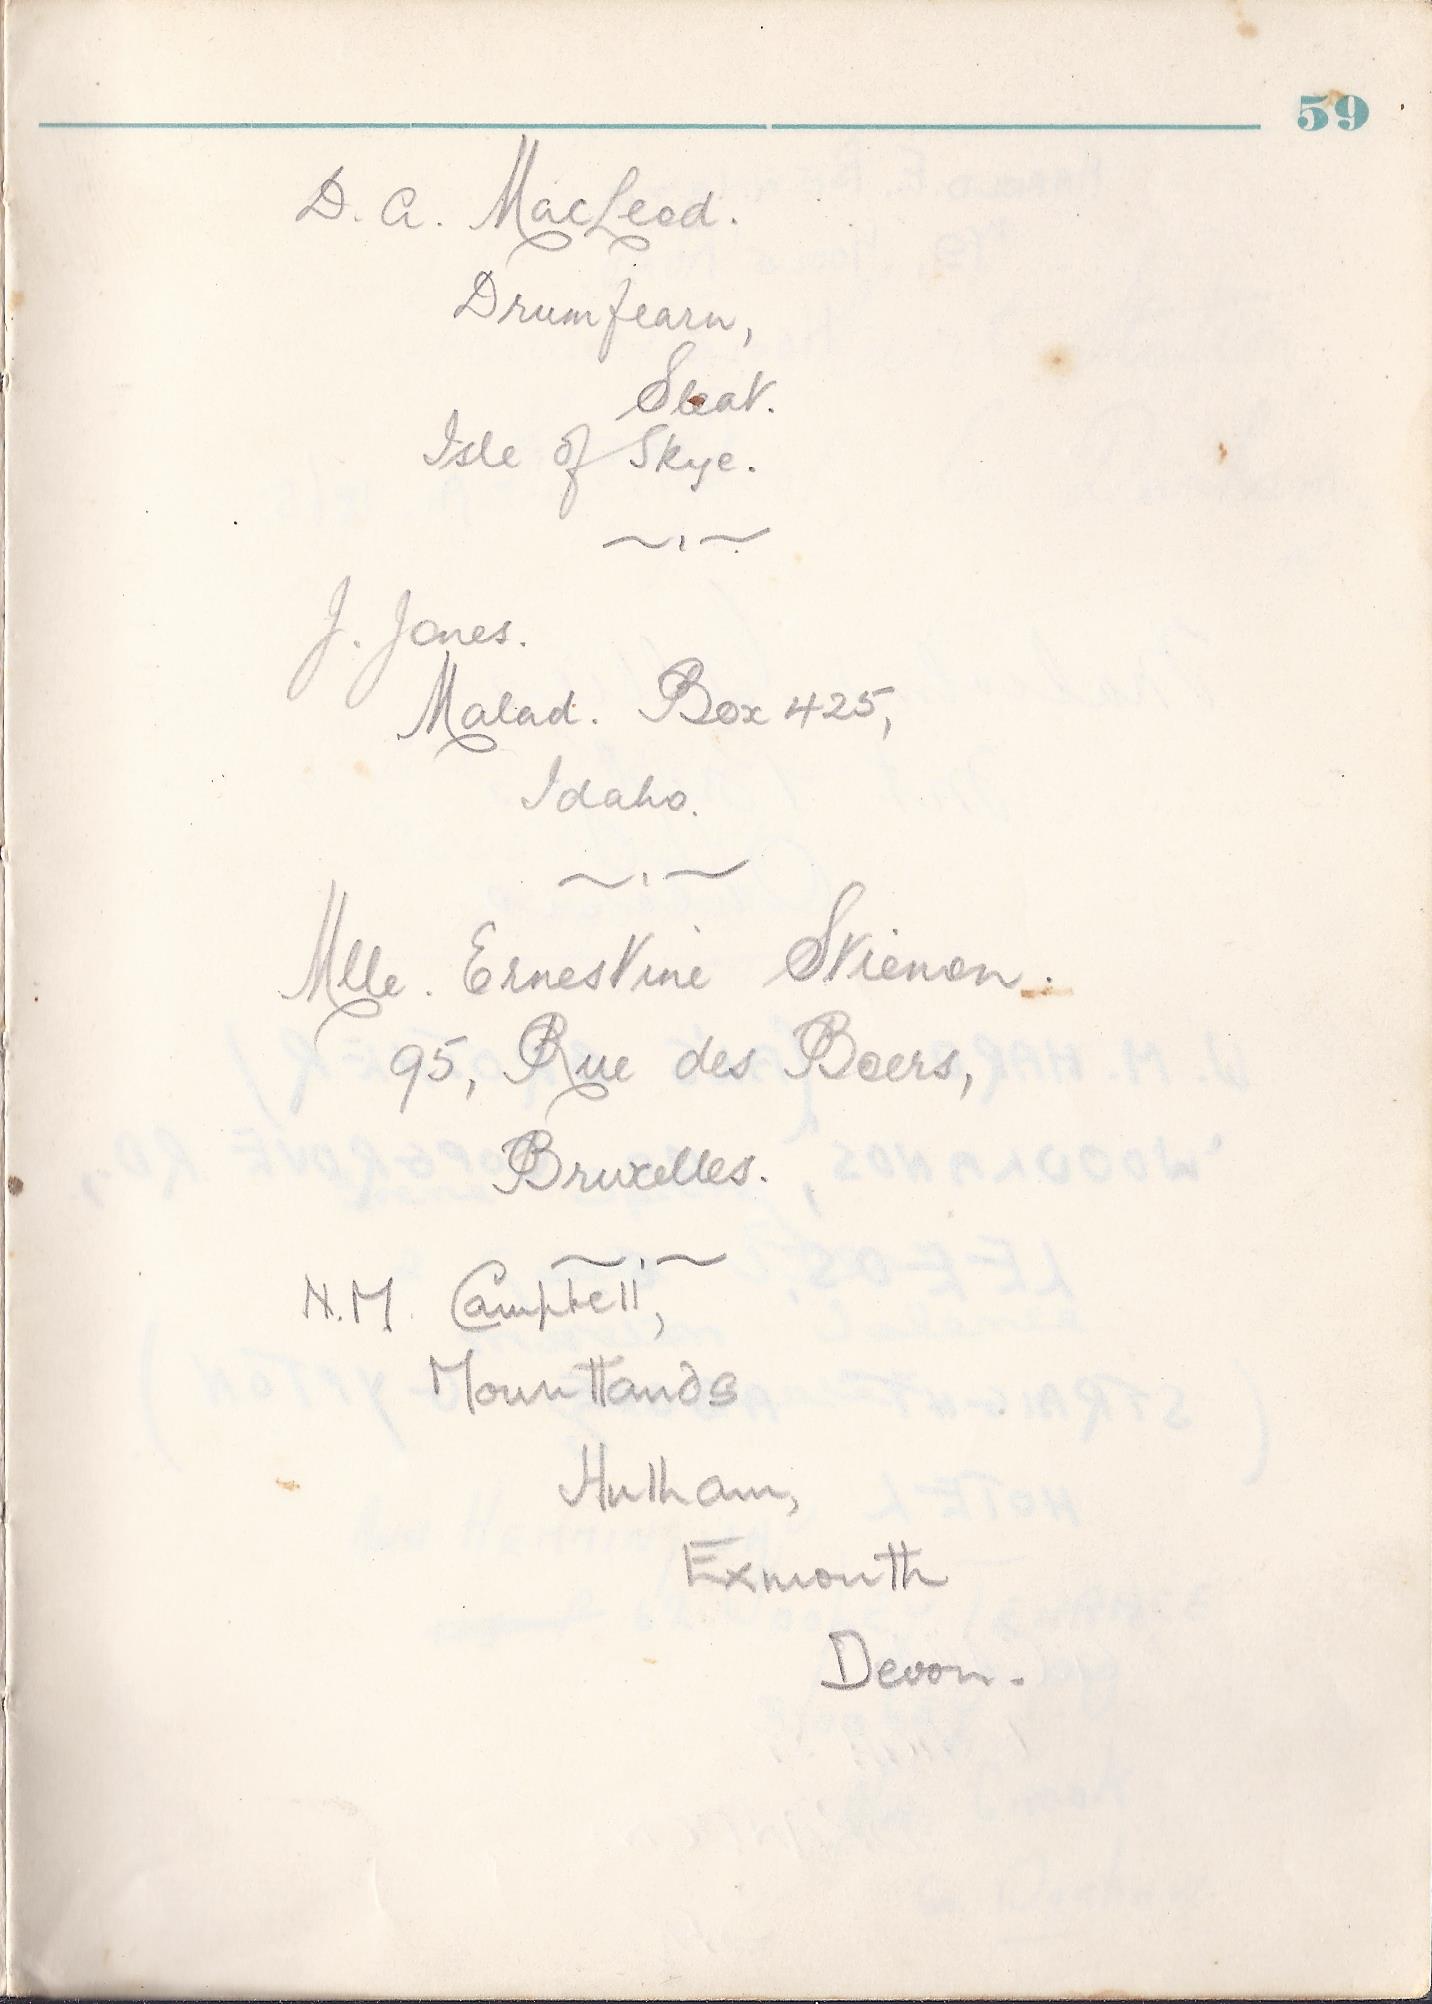 59
D. A. MacLeod.
Drumfearn,
Sleat.
Isle of Skye.
J. Jones.
Malad. Box 425,
Idaho.
Mlle. Ernestine Stienon.
95, Rue des Boers,
Bruxelles.
N.M. Campbell,
Mountlands
Hulham,
Exmouth
Devon.